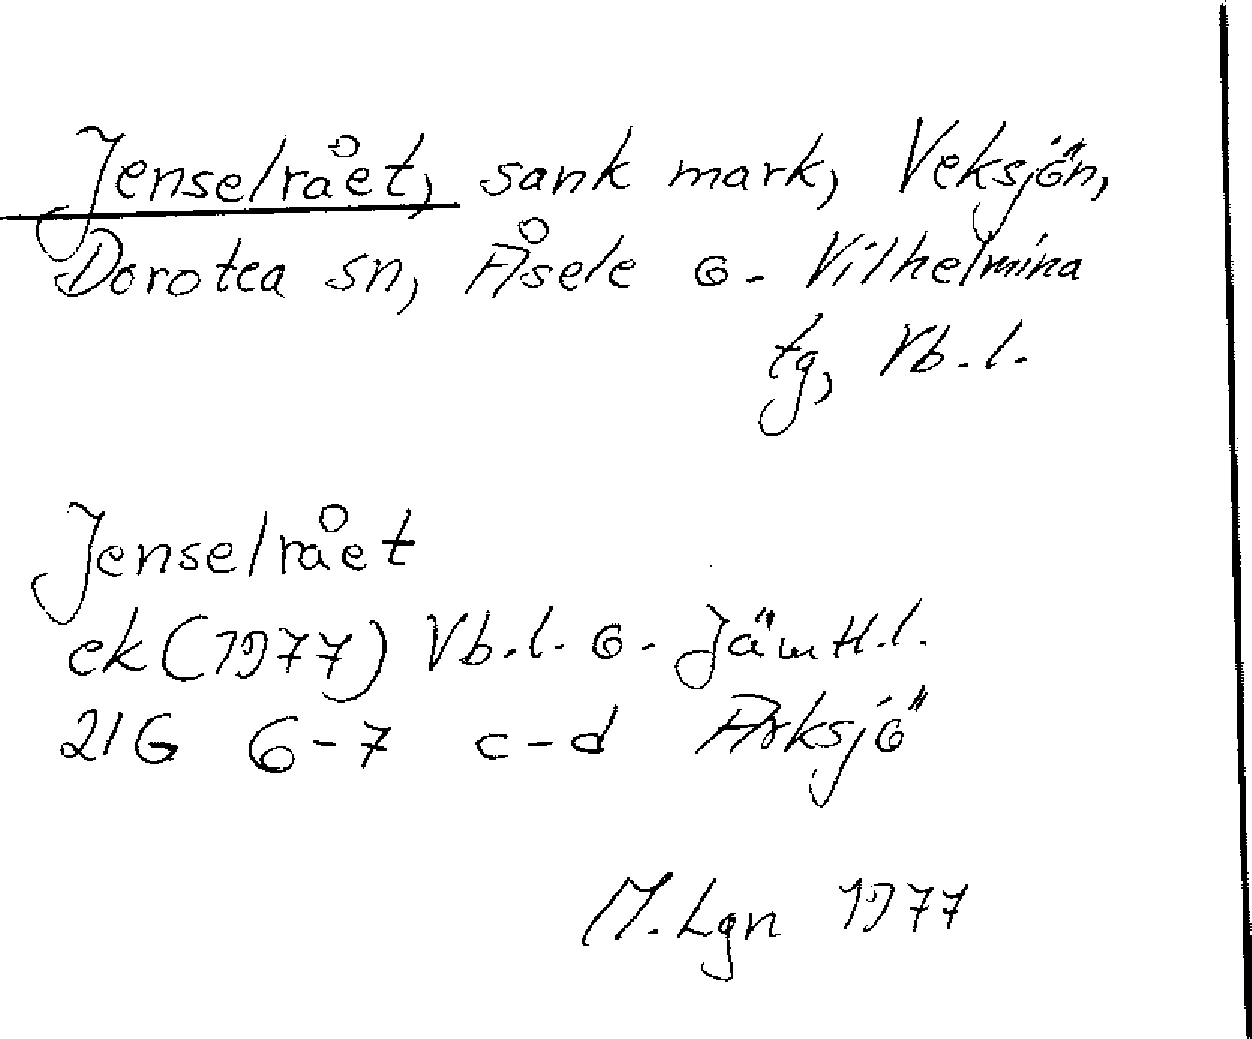 Jenselrået, sank mark, Veksjön,
Dorotea sn, Åsele o. Vilhelmina
tg, Vb.l.
Jenselrået
ek (1977) Vb.l. o. Jämtl.l.
21G 6-7 c-d Arksjö
M. Lgn 1977